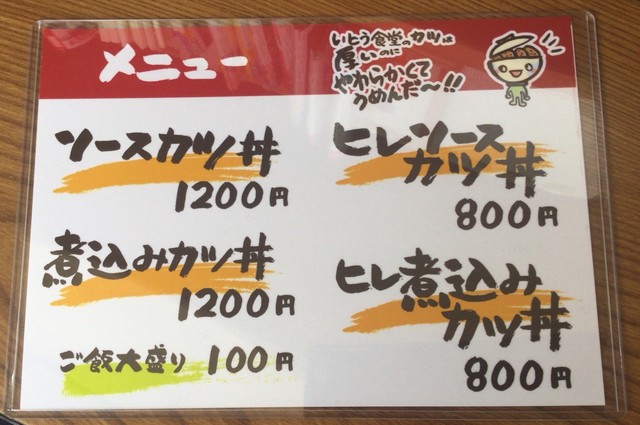 メニュー
いとう食堂のカツは
厚いのに
やわらかくて
うめんだ〜!!
ソースカツ丼
1200円
煮込みカツ丼
1200円
ご飯大盛り 100円
ヒレソース
カツ丼
800円
ヒレ煮込み
カツ丼
800円